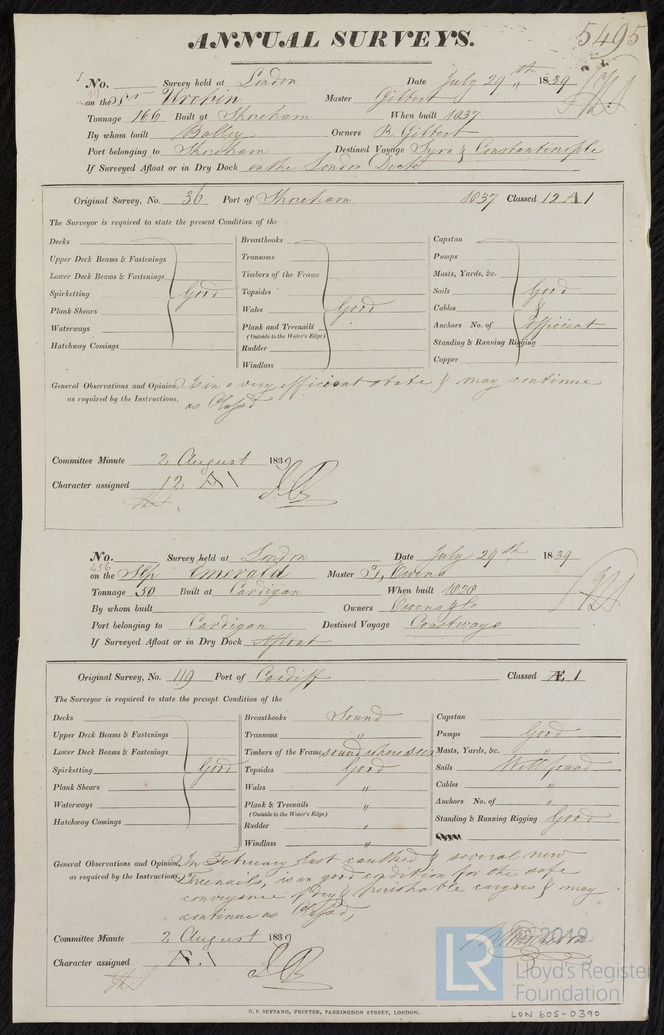 5495
ANNUAL SURVEYS.
No. Survey held at London Date July 29th 1839
on the Sr Wrekin Master Gilbert
Tonnage 166 Built at Shoreham When built 1837
By whom built Balley Owners R. Gilbert
Port belonging to Shoreham Destined Voyage Syra & Constantinople
If Surveyed Afloat or in Dry Dock in the London Dock
Original Survey, No. 36 Port of Shoreham 1837 Classed 12 A 1
The Surveyor is required to state the present Condition of the
Decks
Upper Deck Beams & Fastenings
Lower Deck Beams & Fastenings
Spirketting Good
Plank Shears
Waterways
Hatchway Comings
Breasthooks
Transoms
Timbers of the Frame
Topsides
Wales Good
Plank and Treenails
(Outside to the Water's Edge)
Rudder
Windlass
Capstan
Pumps
Masts, Yards, &c.
Sails Good
Cables &
Anchors No. of Efficient
Standing & Running Rigging
Copper
General Observations and Opinion, Is in a very efficient state & may continue
as required by the Instructions, as Classd
Committee Minute 2 August 1839
Character assigned 12 A 1
No. Survey held at London Date July 29th 1839
456
on the Slp Emerald Master T, Owens
Tonnage 50 Built at Cardigan When built 1828
By whom built Owners Owens & Co
Port belonging to Cardigan Destined Voyage Coastways
If Surveyed Afloat or in Dry Dock Afloat
Original Survey, No. 119 Port of Cardiff Classed Æ 1
The Surveyor is required to state the present Condition of the
Decks
Upper Deck Beams & Fastenings
Lower Deck Beams & Fastenings
Spirketting Good
Plank Shears
Waterways
Hatchway Comings
Breasthooks Sound
Transoms "
Timbers of the Frame sound where seen
Topsides Good
Wales "
Plank & Treenails "
(Outside to the Water's Edge)
Rudder "
Windlass "
Capstan
Pumps Good
Masts, Yards, &c. "
Sails Well found
Cables "
Anchors No. of "
Standing & Running Rigging Good
General Observations and Opinion, In February last caulked & several new
as required by the Instructions, Treenails, is in good condition for the safe
conveyance of dry & perishable cargoes & may
continue as Classed,
Committee Minute 2 August 1839
Character assigned Æ 1
C. F. SEYFANG, PRINTER, FARRINGDON STREET, LONDON.
LR
© 2019
Lloyd's Register
Foundation
LON 605-0390